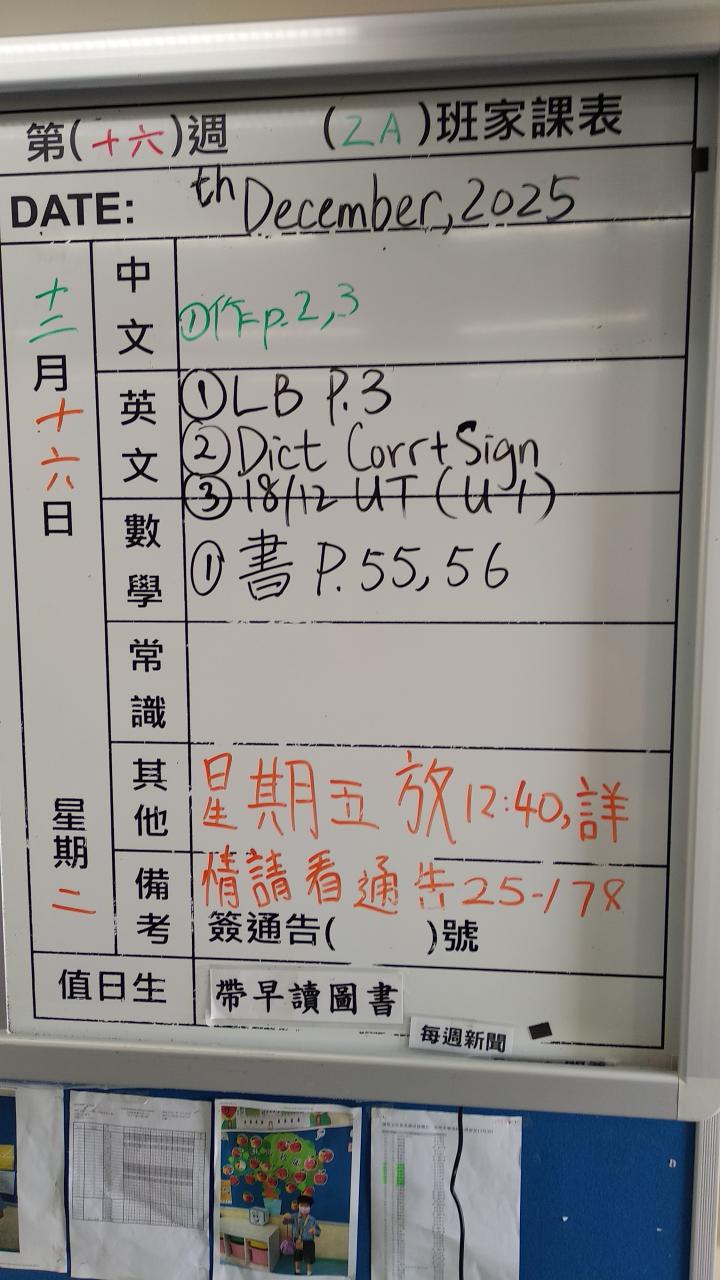 第(十六)週 (2A)班家課表
DATE: th December, 2025
十二月十六日
星期二
中文
①作p.2,3
英文
①LB P.3
②Dict Corr+Sign
③18/12 UT (U1)
數學
①書 P.55,56
常識
其他
星期五放12:40,詳
備考
情請看通告25-178
簽通告( )號
值日生
帶早讀圖書
每週新聞